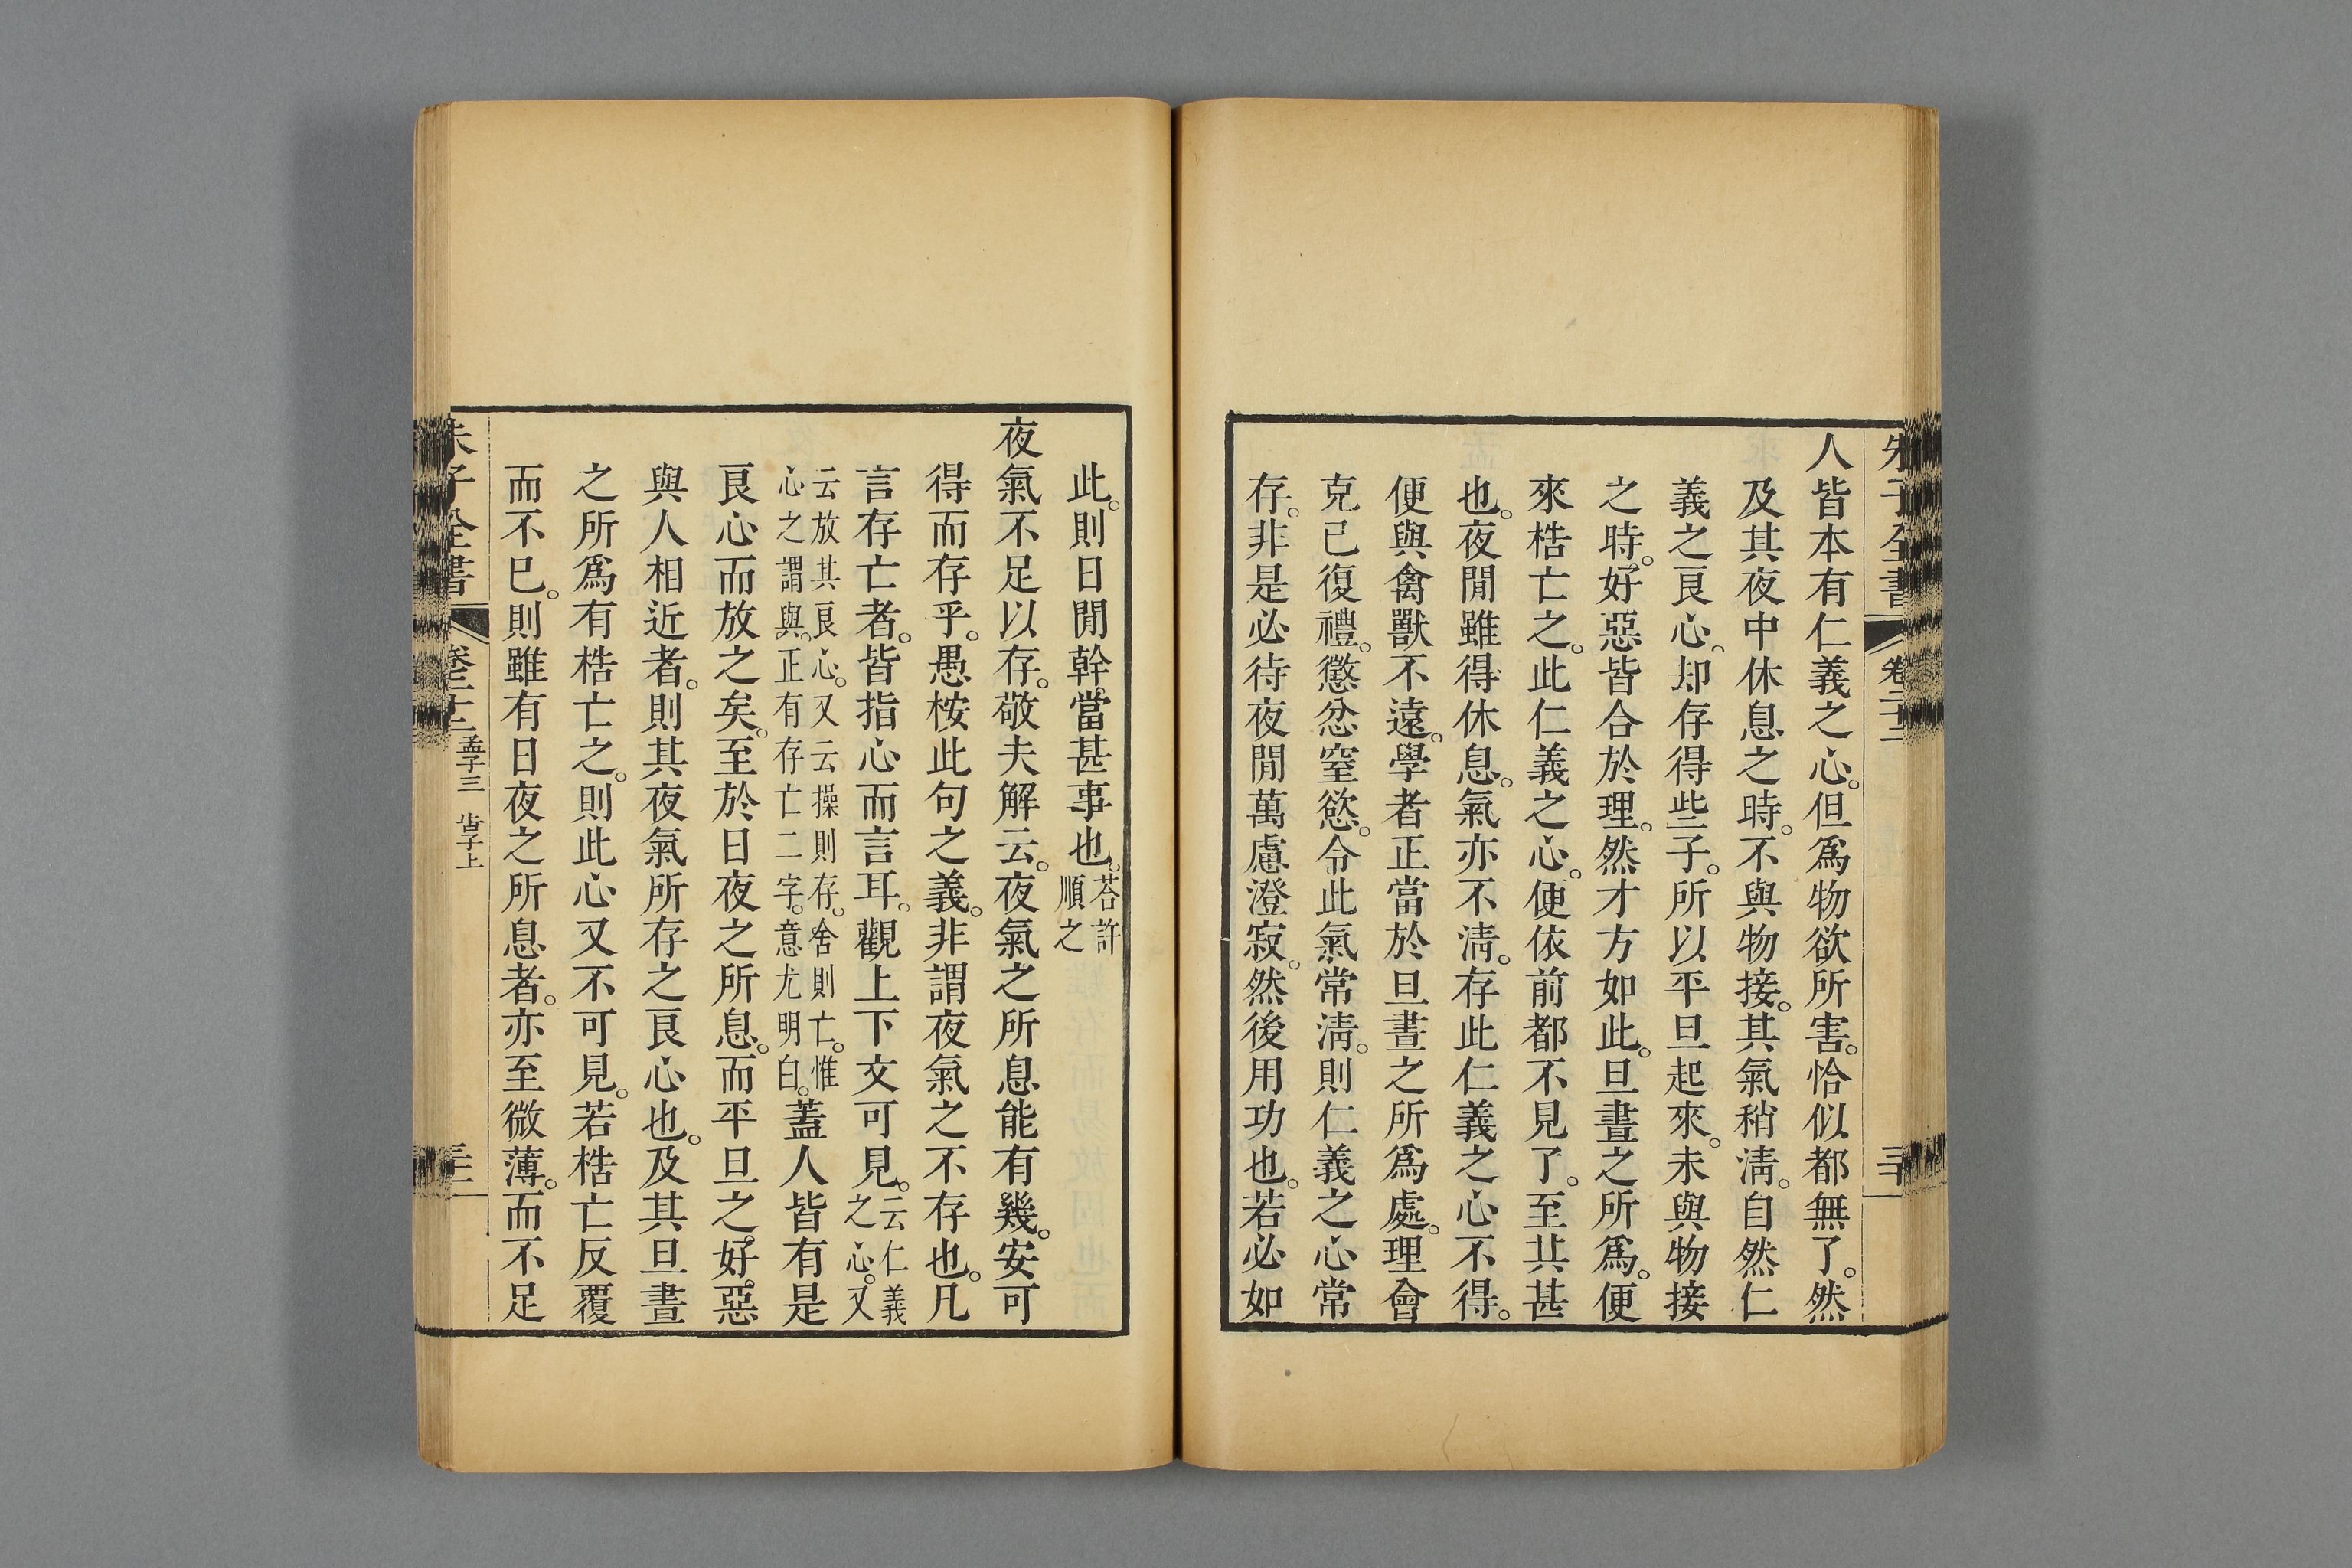 朱子全書 卷二十二
人皆本有仁義之心。但爲物欲所害。恰似都無了。然
及其夜中休息之時。不與物接。其氣稍淸。自然仁
義之良心。却存得些子。所以平旦起來。未與物接
之時。好惡皆合於理。然才方如此。旦晝之所爲。便
來梏亡之。此仁義之心。便依前都不見了。至其甚
也。夜閒雖得休息。氣亦不淸。存此仁義之心不得。
便與禽獸不遠。學者正當於旦晝之所爲處。理會
克已復禮。懲忿窒慾。令此氣常淸。則仁義之心常
存。非是必待夜閒萬慮澄寂。然後用功也。若必如
此。則日閒幹當甚事也。荅許
順之
夜氣不足以存。敬夫解云。夜氣之所息能有幾。安可
得而存乎。愚桉此句之義。非謂夜氣之不存也。凡
言存亡者。皆指心而言耳。觀上下文可見。云仁義
之心。又
云放其良心。又云操則存。舍則亡。惟
心之謂與。正有存亡二字。意尤明白。蓋人皆有是
良心而放之矣。至於日夜之所息。而平旦之好惡
與人相近者。則其夜氣所存之良心也。及其旦晝
之所爲有梏亡之。則此心又不可見。若梏亡反覆
而不已。則雖有日夜之所息者。亦至微薄。而不足
朱子全書 卷二十二 孟子三 告子上